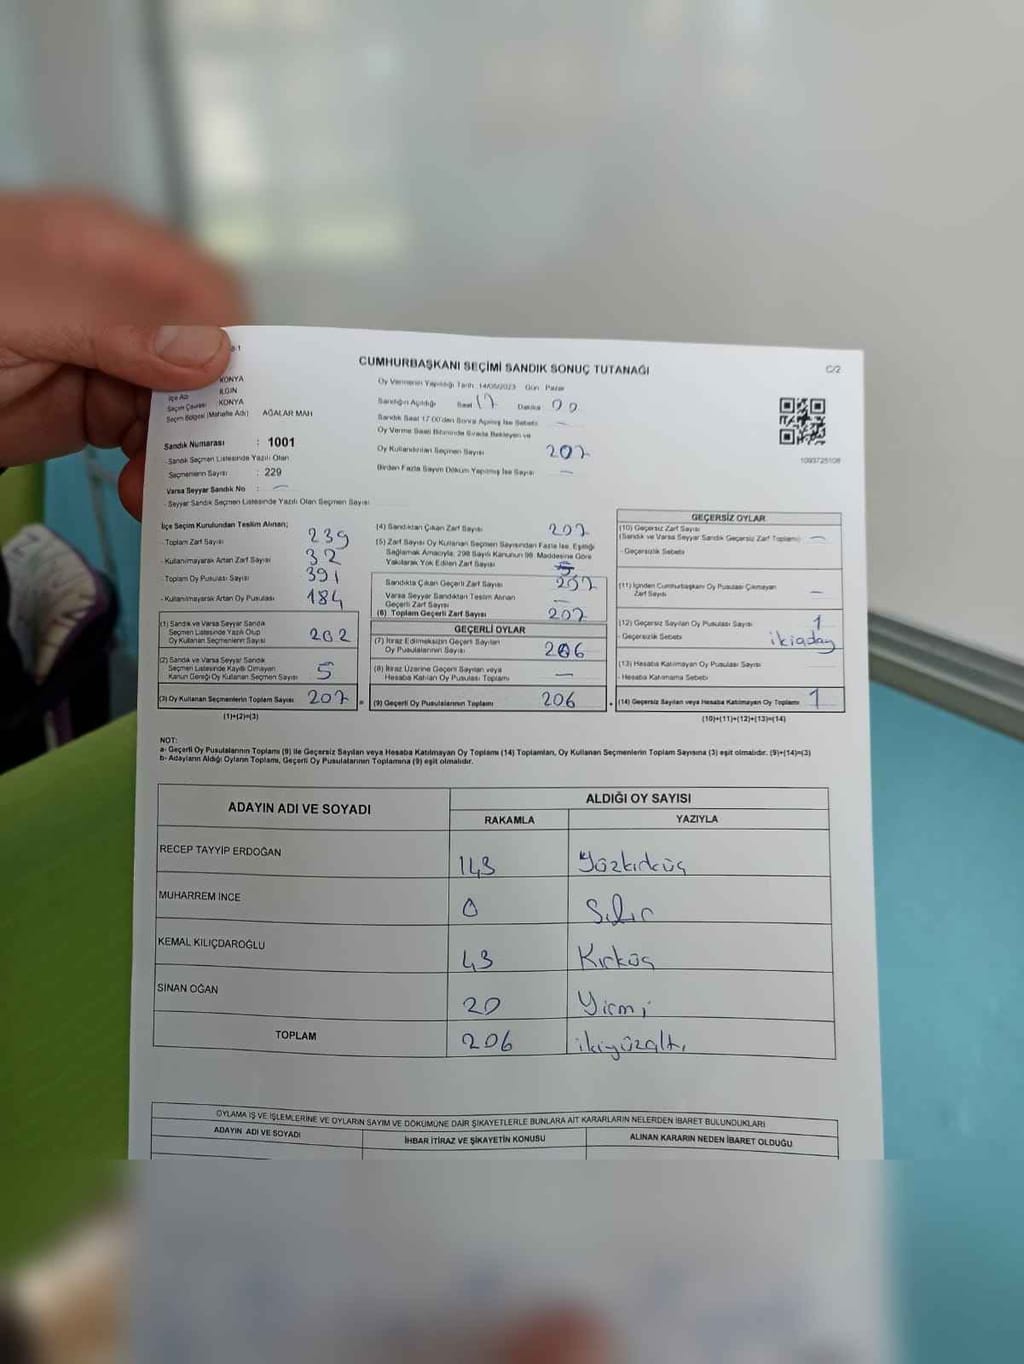 CUMHURBAŞKANI SEÇİMİ SANDIK SONUÇ TUTANAĞI
C/2
KONYA
İlçe Adı ILGIN
Seçim Çevresi KONYA
Seçim Bölgesi (Mahalle Adı) AĞALAR MAH
Oy Vermenin Yapıldığı Tarih: 14/05/2023 Gün Pazar
Sandığın Açıldığı Saat 17 Dakika 00
Sandık Saat 17:00'den Sonra Açılmış İse Sebebi -
Oy Verme Saati Bitiminde Sırada Bekleyen ve
Oy Kullandırılan Seçmen Sayısı 207
Birden Fazla Sayım Döküm Yapılmış İse Sayısı -
1093725108
Sandık Numarası : 1001
- Sandık Seçmen Listesinde Yazılı Olan
Seçmenlerin Sayısı : 229
Varsa Seyyar Sandık No : -
- Seyyar Sandık Seçmen Listesinde Yazılı Olan Seçmen Sayısı
İlçe Seçim Kurulundan Teslim Alınan;
- Toplam Zarf Sayısı 239
- Kullanılmayarak Artan Zarf Sayısı 32
- Toplam Oy Pusulası Sayısı 391
- Kullanılmayarak Artan Oy Pusulası 184
(1) Sandık ve Varsa Seyyar Sandık
Seçmen Listesinde Yazılı Olup
Oy Kullanan Seçmenlerin Sayısı 202
(2) Sandık ve Varsa Seyyar Sandık
Seçmen Listesinde Kayıtlı Olmayan
Kanun Gereği Oy Kullanan Seçmen Sayısı 5
(3) Oy Kullanan Seçmenlerin Toplam Sayısı 207 =
(1)+(2)=(3)
(4) Sandıktan Çıkan Zarf Sayısı 207
(5) Zarf Sayısı Oy Kullanan Seçmen Sayısından Fazla İse, Eşitliği
Sağlamak Amacıyla, 298 Sayılı Kanunun 98. Maddesine Göre
Yakılarak Yok Edilen Zarf Sayısı
Sandıkta Çıkan Geçerli Zarf Sayısı 207
Varsa Seyyar Sandıktan Teslim Alınan
Geçerli Zarf Sayısı -
(6) Toplam Geçerli Zarf Sayısı 207
GEÇERLİ OYLAR
(7) İtiraz Edilmeksizin Geçerli Sayılan
Oy Pusulalarının Sayısı 206
(8) İtiraz Üzerine Geçerli Sayılan veya
Hesaba Katılan Oy Pusulaları Toplamı -
(9) Geçerli Oy Pusulalarının Toplamı 206 +
GEÇERSİZ OYLAR
(10) Geçersiz Zarf Sayısı
(Sandık ve Varsa Seyyar Sandık Geçersiz Zarf Toplamı) -
- Geçersizlik Sebebi
(11) İçinden Cumhurbaşkanı Oy Pusulası Çıkmayan
Zarf Sayısı -
(12) Geçersiz Sayılan Oy Pusulası Sayısı 1
- Geçersizlik Sebebi iki aday
(13) Hesaba Katılmayan Oy Pusulası Sayısı
- Hesaba Katılmama Sebebi
(14) Geçersiz Sayılan veya Hesaba Katılmayan Oy Toplamı 1
(10)+(11)+(12)+(13)=(14)
NOT:
a- Geçerli Oy Pusulalarının Toplamı (9) ile Geçersiz Sayılan veya Hesaba Katılmayan Oy Toplamı (14) Toplamları, Oy Kullanan Seçmenlerin Toplam Sayısına (3) eşit olmalıdır. (9)+(14)=(3)
b- Adayların Aldığı Oyların Toplamı, Geçerli Oy Pusulalarının Toplamına (9) eşit olmalıdır.
ADAYIN ADI VE SOYADI ALDIĞI OY SAYISI
RAKAMLA YAZIYLA
RECEP TAYYİP ERDOĞAN 143 Yüzkırküç
MUHARREM İNCE 0 Sıfır
KEMAL KILIÇDAROĞLU 43 Kırküç
SİNAN OĞAN 20 Yirmi
TOPLAM 206 ikiyüzaltı
OYLAMA İŞ VE İŞLEMLERİNE VE OYLARIN SAYIM VE DÖKÜMÜNE DAİR ŞİKAYETLERLE BUNLARA AİT KARARLARIN NELERDEN İBARET BULUNDUKLARI
ADAYIN ADI VE SOYADI İHBAR İTİRAZ VE ŞİKAYETİN KONUSU ALINAN KARARIN NEDEN İBARET OLDUĞU